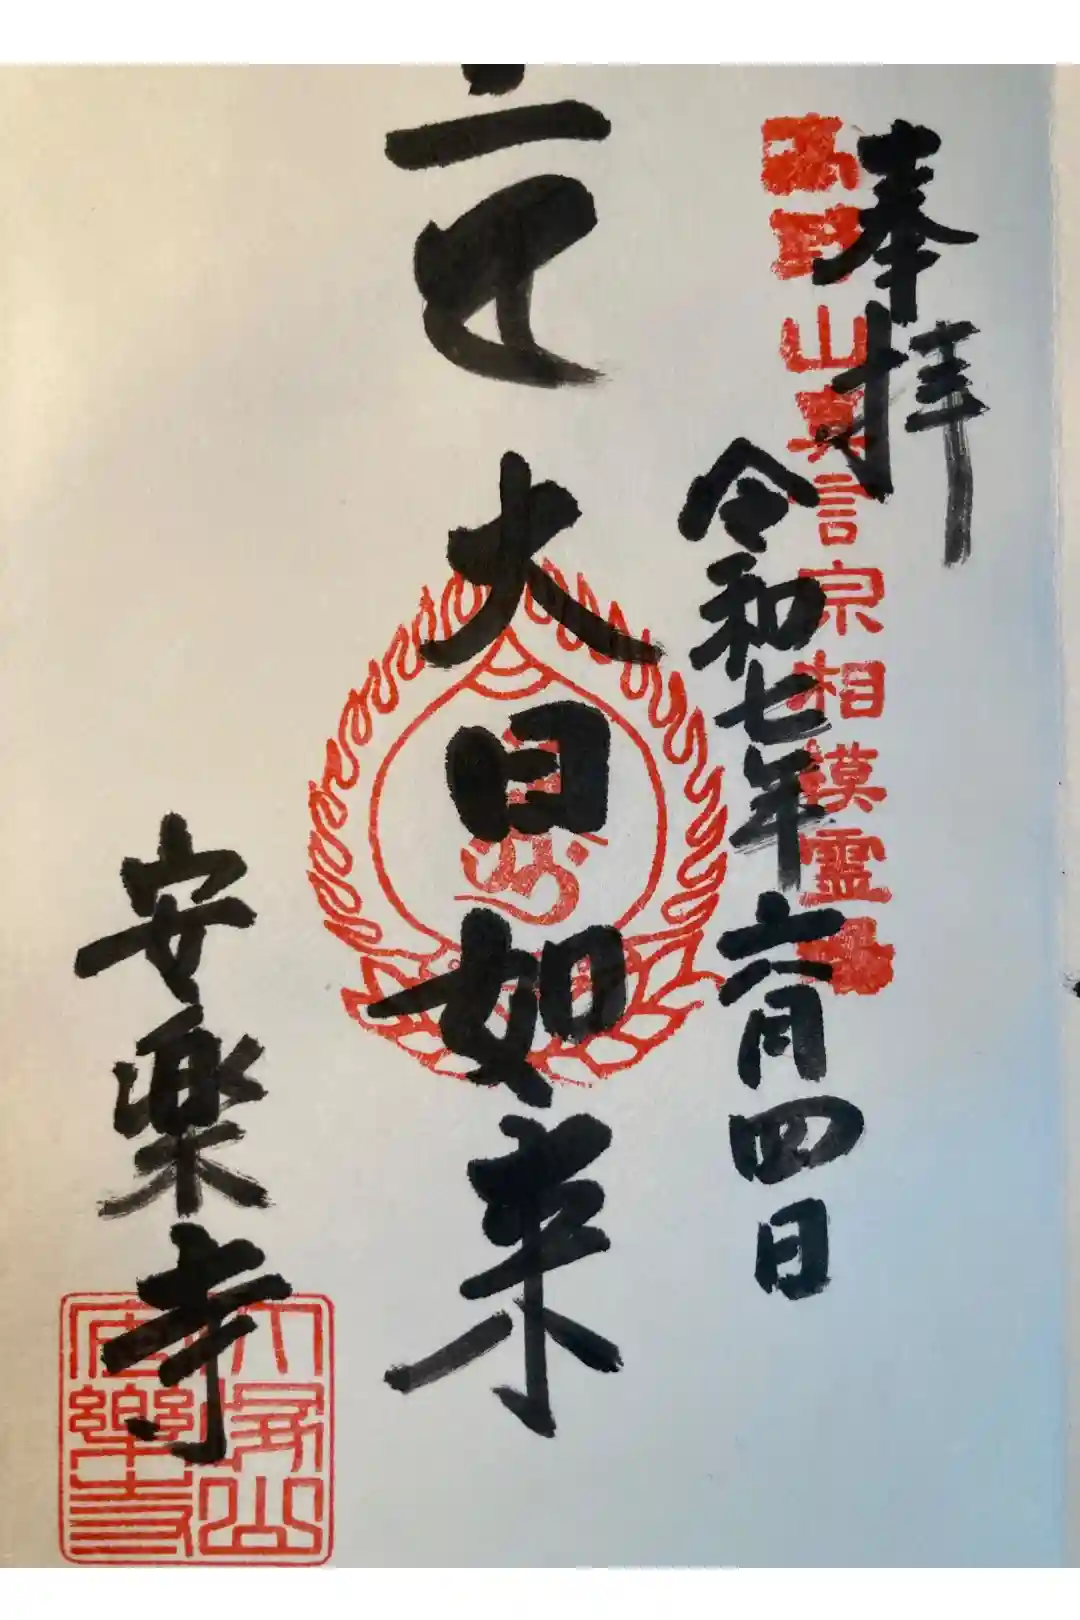 奉拝
高野山真言宗相模霊場
令和七年六月四日
大日如来
安楽寺
大塚山
安樂寺